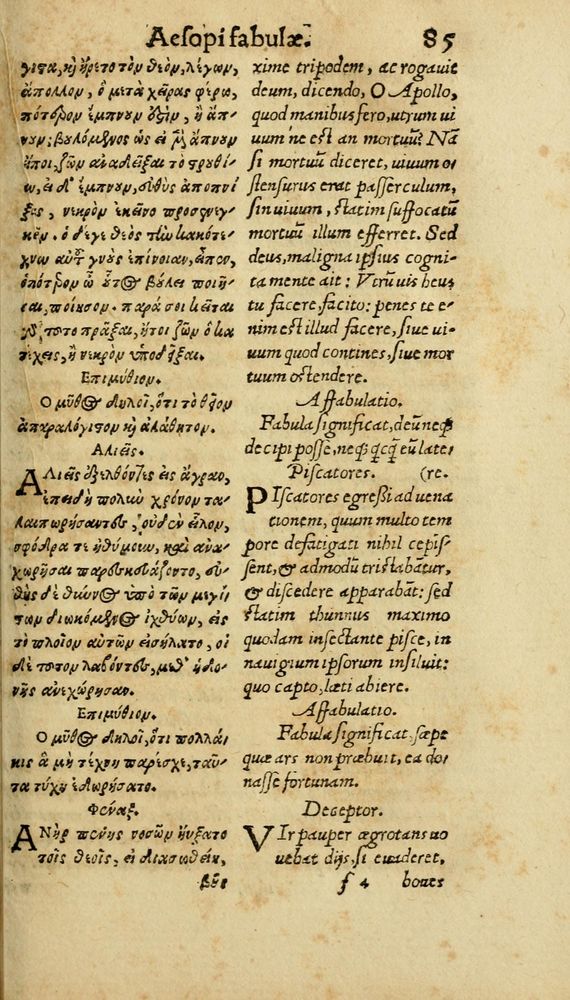 Aesopi fabulæ. 85
γιστα, καὶ ἤρετο τὸν θεὸν, λέγων,
ἄπολλον, ὃ μετὰ χεῖρας φέρω,
πότερον ἔμπνουν ἐστὶν, ἢ ἄπ-
νουν; βουλόμενος ὡς εἰ μὲν ἄπνουν
εἴποι, ζῶν ἀναδεῖξαι τὸ στρουθί-
ον, εἰ δ' ἔμπνουν, εὐθὺς ἀποπνί-
ξας, νεκρὸν ἐκεῖνο προσενεγ-
κεῖν. ὁ δέ γε θεὸς τὴν κακότε-
χνον αὐτοῦ γνοὺς ἐπίνοιαν, εἶπεν,
ὁπότερον ὦ οὗτος βούλει ποιῆ-
σαι, ποίησον. παρὰ σοὶ κεῖται
γὰρ τοῦτο πρᾶξαι, ἤτοι ζῶν ὃ κα-
τέχεις, ἢ νεκρὸν ὑποδεῖξαι.
Επιμύθιον.
Ο μῦθος δηλοῖ, ὅτι τὸ θεῖον
ἀπαραλόγιστον καὶ ἀλάθητον.
Αλιεῖς.
ΑΛιεῖς ἐξελθόντες εἰς ἄγραν,
ἐπειδὴ πολὺν χρόνον τα-
λαιπωρήσαντες, οὐδὲν εἷλον,
σφόδρα τε ἠθύμουν, καὶ ἀνα-
χωρῆσαι παρεσκευάζοντο, εὐ-
θὺς δὲ θύννος ὑπό του τῶν μεγίς-
των διωκόμενος ἰχθύων, εἰς
τὸ πλοῖον αὐτῶν εἰσήλατο, οἱ
δὲ τοῦτον λαβόντες, μεθ' ἡδο-
νῆς ἀνεχώρησαν.
Επιμύθιον.
Ο μῦθος δηλοῖ, ὅτι πολλά-
κις ἃ μὴ τέχνη παρέσχε, ταῦ-
τα τύχη ἐδωρήσατο.
Φέναξ.
ΑΝὴρ πένης νοσῶν ηὔξατο
τοῖς θεοῖς, εἰ διασωθείη,
βοῦς
xime tripodem, ac rogauit
deum, dicendo, O Apollo,
quod manibus fero, utrum ui
uum ne est an mortuū? Nā
si mortuū diceret, uiuum o-
stensurus erat passerculum,
sin uiuum, statim suffocatū
mortuū illum efferret. Sed
deus, maligna ipsius cogni-
ta mente ait: Vtrū uis heus
tu facere, facito: penes te e-
nim est illud facere, siue ui-
uum quod contines, siue mor
tuum ostendere.
Affabulatio.
Fabula significat, deū neq;
decipi posse, neq; qcq̄ eū late-
Piscatores. (re.
PIscatores egreßi ad uena
tionem, quum multo tem
pore defatigati nihil cepis-
sent, & admodū tristabātur,
& discedere apparabāt: sed
statim thunnus maximo
quodam insectante pisce, in
nauigium ipsorum insiluit:
quo capto, læti abiere.
Affabulatio.
Fabula significat, sæpe
quæ ars non præbuit, ea do-
nasse fortunam.
Deceptor.
VIr pauper ægrotans uo
uebat dijs, si euaderet,
f 4 boues